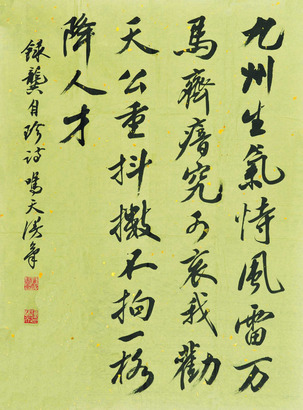 九州生氣恃風雷万
馬齊瘖究可哀我勸
天公重抖擻不拘一格
降人才
録龔自珍詩